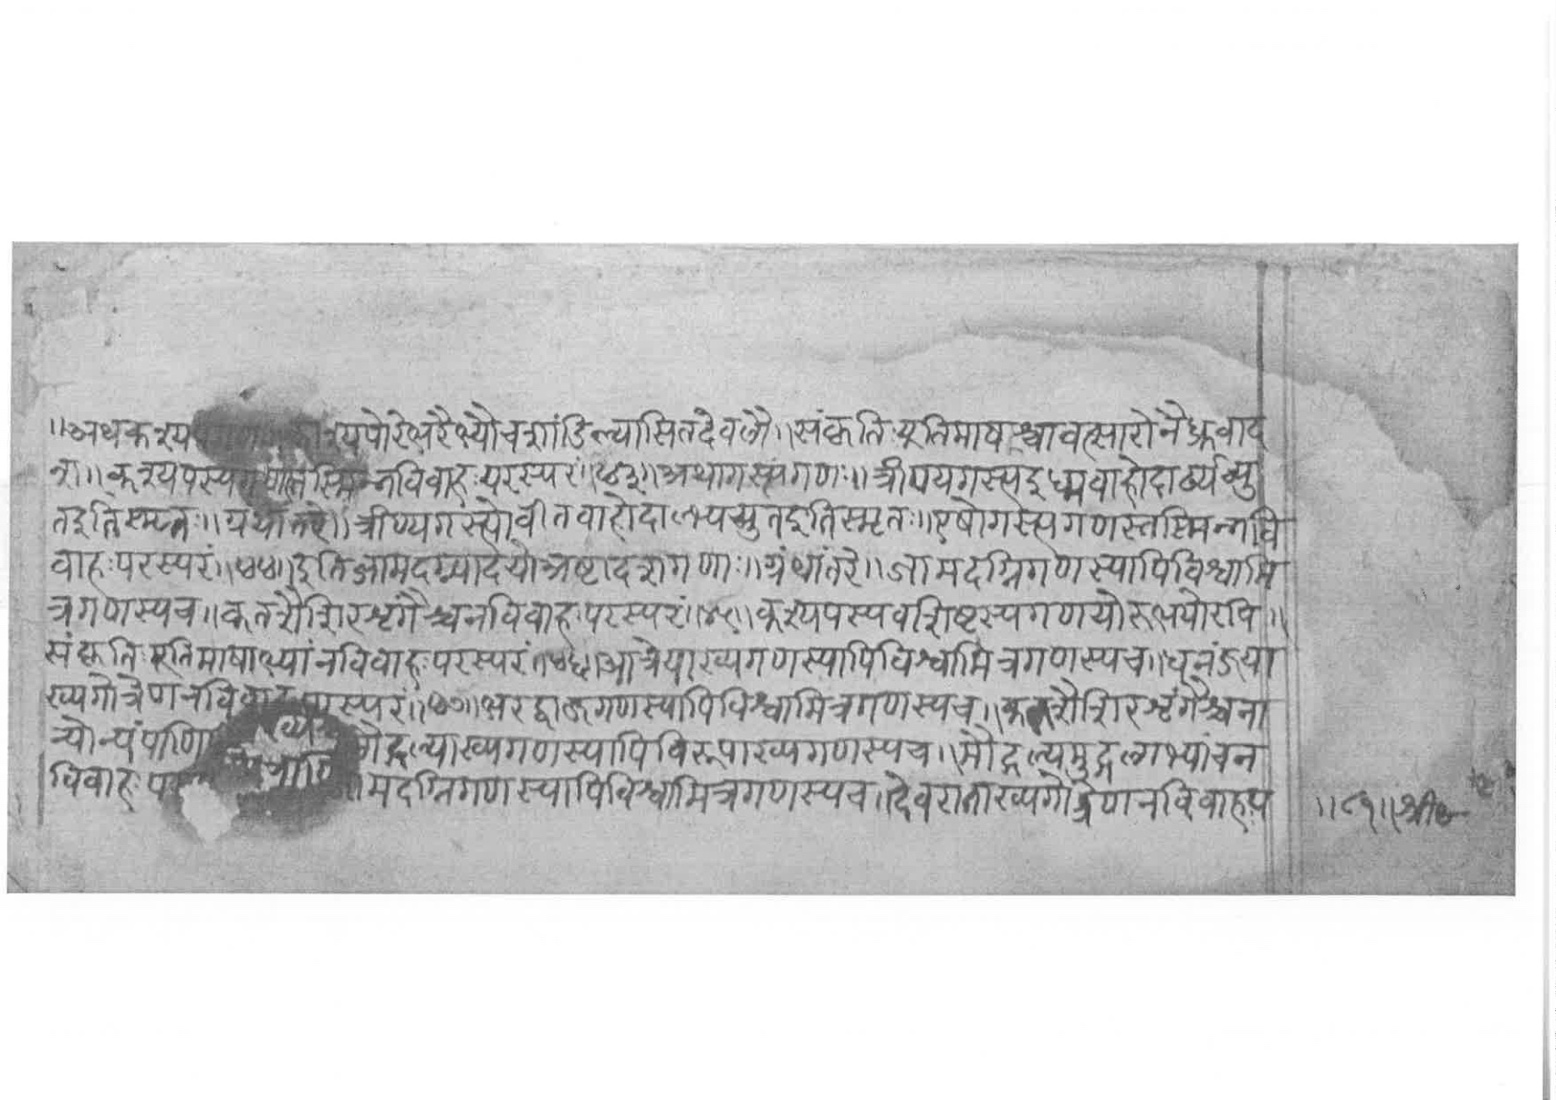 ॥अथकश्य श्यपोरेभरैभ्यौचशांडिल्यासितदेवलौ॥संकृतिःपूतिमाषाश्चावत्सारोनैध्रुवाद
श॥कश्यपस्यग नविवाहःपरस्परं॥४३॥अथागस्त्यगणः॥त्रीण्यगस्त्यइध्मवाहोदार्ढ्यच्यु
तइतिस्मृतः॥ग्रंथांतरे॥त्रीण्यगस्त्योवीतवाहोदाळ्यच्युतइतिस्मृतः॥एषोगस्त्यगणस्तस्मिन्नवि
वाहःपरस्परं॥४४॥इतिजामदग्न्यादयोअष्टादशगणाः॥ग्रंथांतरे॥जामदग्निगणस्यापिविश्वामि
त्रगणस्यच॥कतशैशिरशृंगैश्चनविवाहःपरस्परं॥४५॥कश्यपस्यवशिष्टस्यगणयोरुभयोरपि॥
संकृतिःपूतिमाषाभ्यांनविवाहःपरस्परं॥४६॥आत्रेयाख्यगणस्यापिविश्वामित्रगणस्यच॥धनंजया
ख्यगोत्रेणनविवाहःपरस्परं॥४७॥भरद्वाजगणस्यापिविश्वामित्रगणस्यच॥कतशैशिरशृंगैश्चना
न्योन्यंपाणि द्गल्याख्यगणस्यापिविरूपाख्यगणस्यच॥मौद्गल्यमुद्गलाभ्यांचन
विवाहःप मदग्निगणस्यापिविश्वामित्रगणस्यच॥देवराताख्यगोत्रेणनविवाहःप